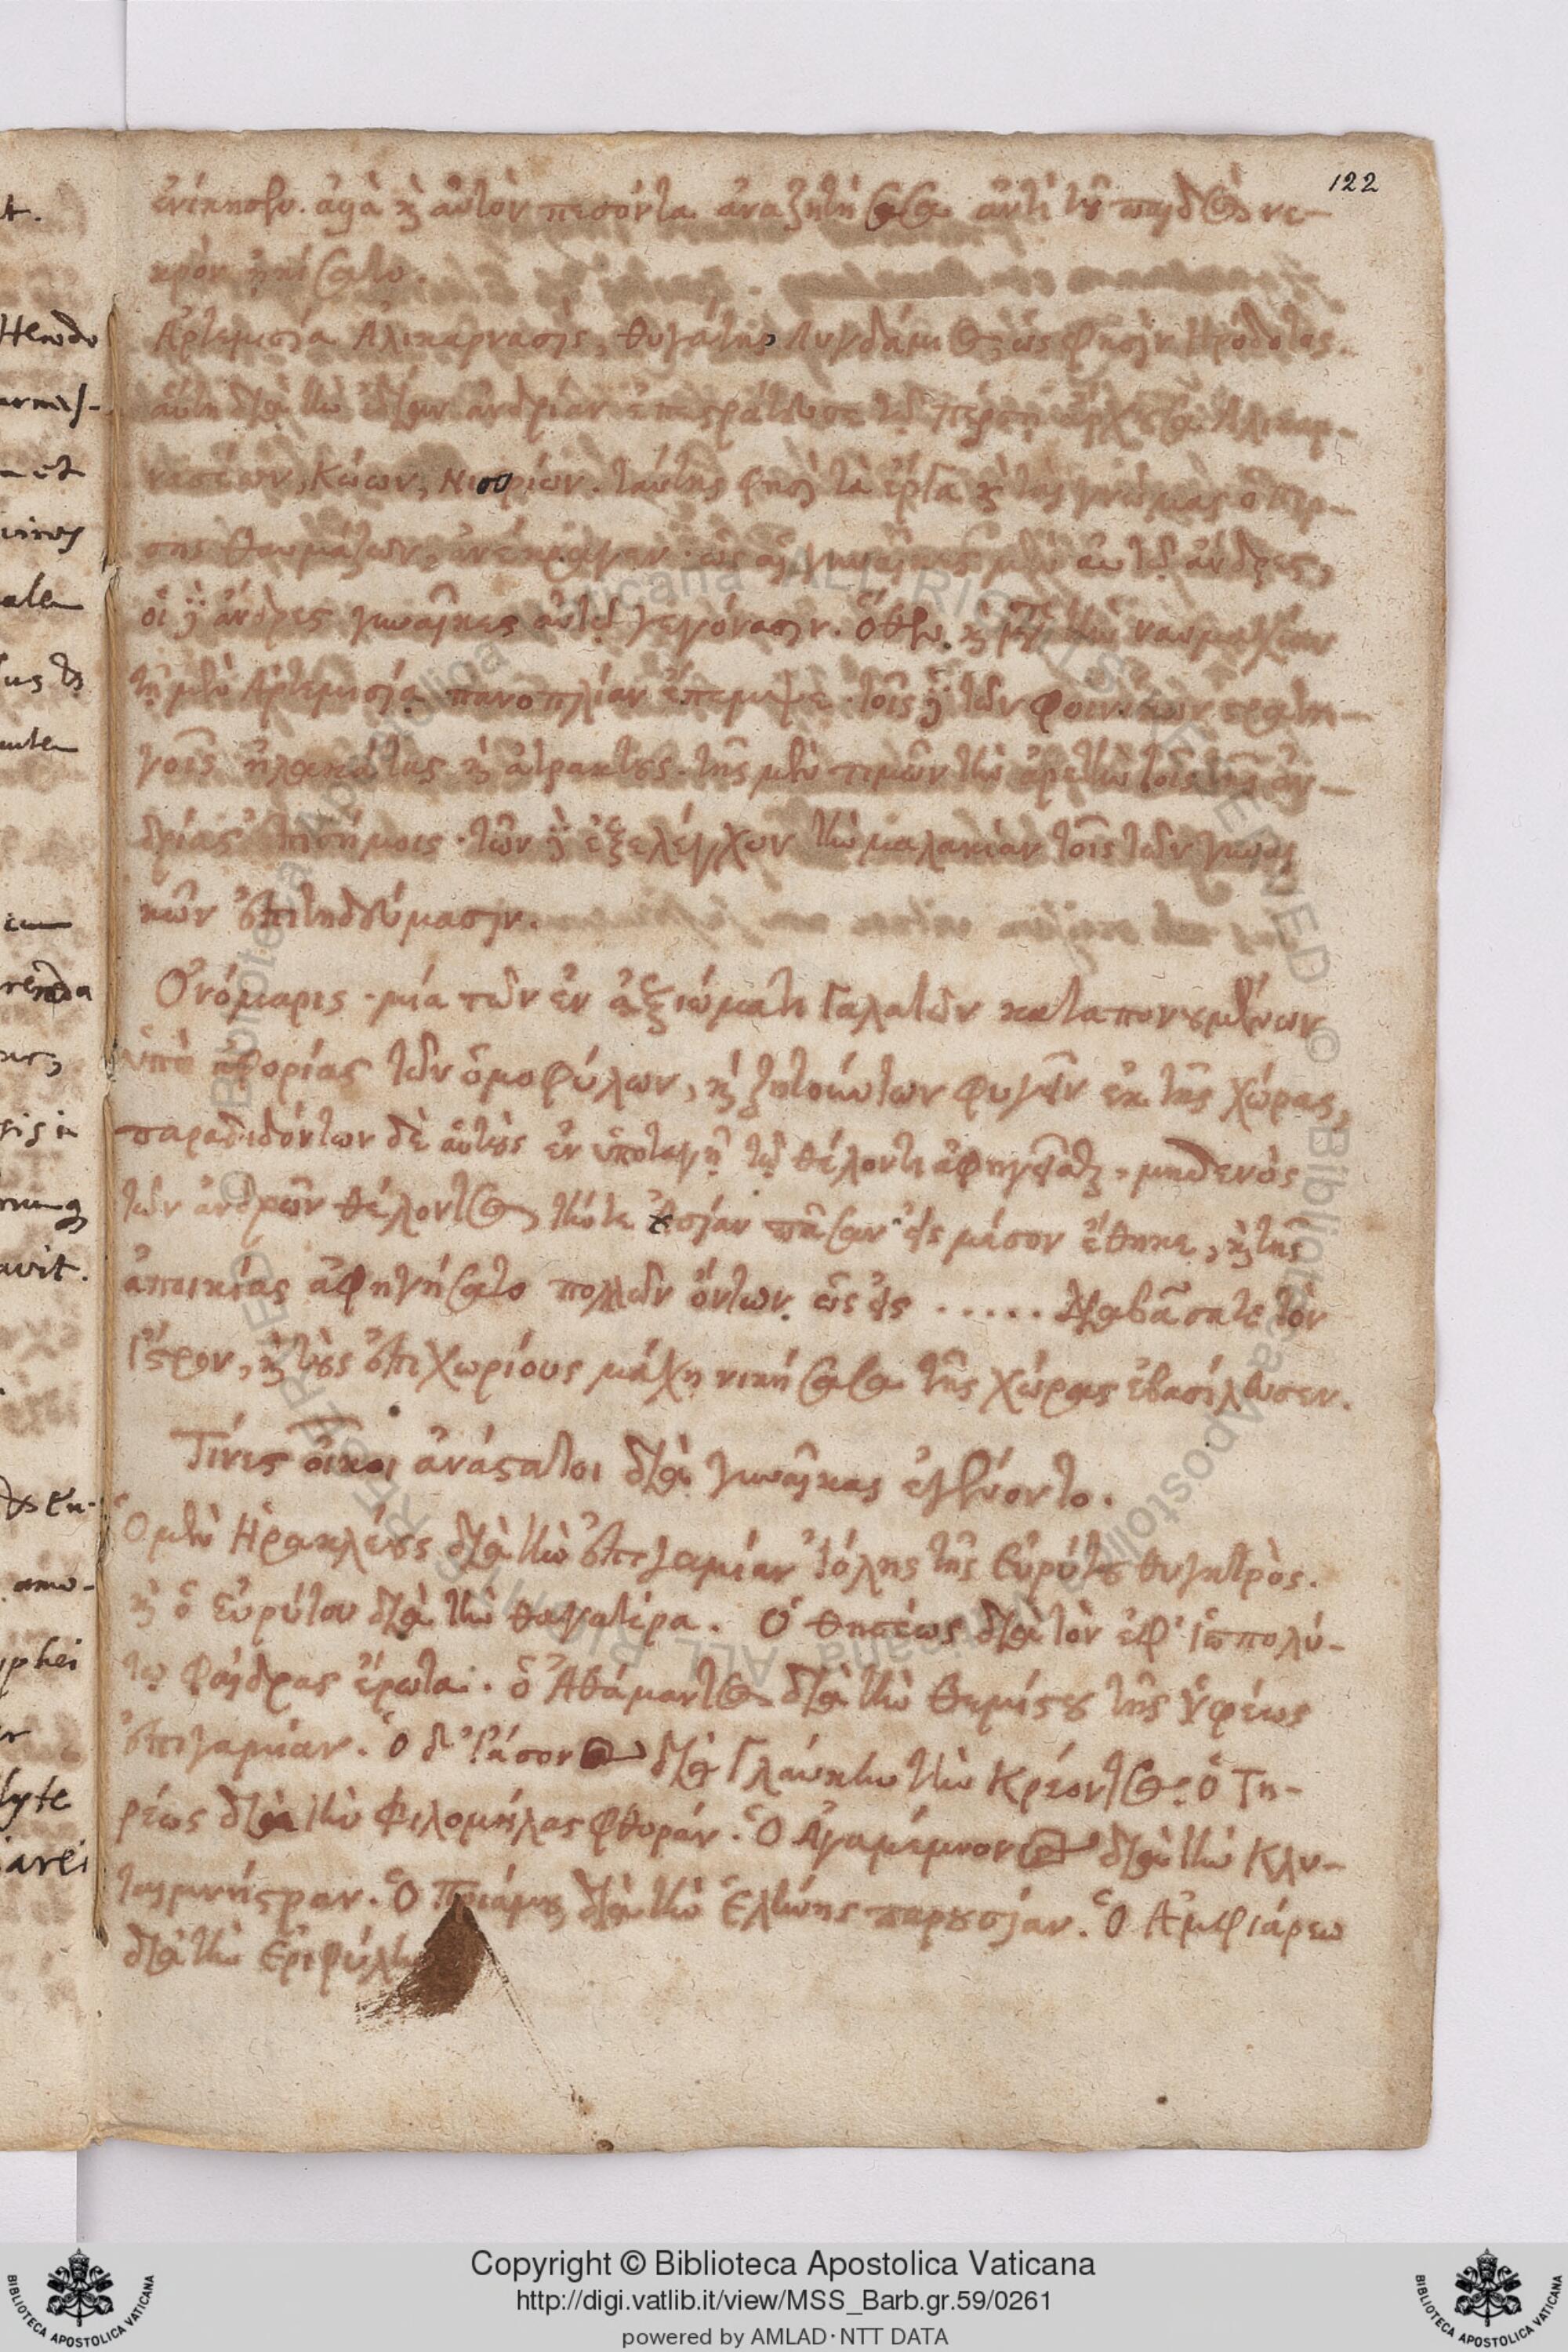 122
ἐνίκησεν. ἀλλὰ καὶ αὐτὸν πεσόντα ἀναζητήσασα ἀντὶ τοῦ παιδὸς νε-
κρὸν ᾐκίσατο.
Ἀρτεμισία Ἁλικαρνασὶς, θυγάτηρ Λυγδάμιδος, ὥς φησιν Ἡρόδοτος.
αὕτη διὰ τὴν ἰδίαν ἀνδρίαν τῷ Πέρσῃ Ἁλικαρ-
νασέων, Κώων, Νισυρίων. ταύτης φησὶ τὰ ἔργα καὶ τὰς γνώμας ὁ Πέρ-
σης θαυμάζων, ἀνέκραγεν· ὡς αἱ γυναῖκες μὲν αὐτῷ ἄνδρες,
οἱ δὲ ἄνδρες γυναῖκες αὐτῷ γεγόνασιν. ὅθεν καὶ μετὰ τὴν ναυμαχίαν
τῇ μὲν Ἀρτεμισίᾳ πανοπλίαν ἔπεμψε· τοῖς δὲ τῶν Φοινίκων στρατη-
γοῖς ἠλακάτας καὶ ἀτράκτους. τῆς μὲν τιμῶν τὴν ἀρετὴν τοῖς τῆς ἀν-
δρίας ἐπισήμοις· τῶν δὲ ἐξελέγχων τὴν μαλακίαν τοῖς τῶν γυναι
κῶν ἐπιτηδεύμασιν.
Ὀνόμαρις· μία τῶν ἐν ἀξιώματι Γαλατῶν καταπονουμένων
ὑπὸ ἀφορίας τῶν ὁμοφύλων, καὶ ζητούντων φυγεῖν ἐκ τῆς χώρας,
παραδιδόντων δὲ αὐτοὺς ἐν ὑποταγῇ τῷ θέλοντι ἀφηγεῖσθαι, μηδενὸς
τῶν ἀνδρῶν θέλοντος, τήν τε οὐσίαν πᾶσαν εἰς μέσον ἔθηκε, καὶ τῆς
ἀποικίας ἀφηγήσατο πολλῶν ὄντων ὡς εἰς ..... διαβᾶσά τε τὸν
Ἴστρον, καὶ τοὺς ἐπιχωρίους μάχῃ νικήσασα τῆς χώρας ἐβασίλευσεν.
Τίνες οἶκοι ἀνάστατοι διὰ γυναῖκας ἐγένοντο.
Ὁ μὲν Ἡρακλέους διὰ τὴν ἐπιγαμίαν Ἰόλης τῆς Εὐρύτου θυγατρὸς.
καὶ ὁ Εὐρύτου διὰ τὴν θυγατέρα. Ὁ Θησέως διὰ τὸν ἐφ' Ἱππολύ-
τῳ Φαίδρας ἔρωτα. ὁ Ἀθάμαντος διὰ τὴν Θεμίστους τῆς Ὑψέως
ἐπιγαμίαν. Ὁ δ' Ἰάσονος διὰ Γλαύκην τὴν Κρέοντος. ὁ Τη-
ρέως διὰ τὴν Φιλομήλας φθοράν. Ὁ Ἀγαμέμνονος διὰ τὴν Κλυ-
ταιμνήστραν. Ὁ Πριάμου διὰ τὴν Ἑλένης παρουσίαν. Ὁ Ἀμφιάρεω
διὰ τὴν Ἐριφύλην
Copyright © Biblioteca Apostolica Vaticana
http://digi.vatlib.it/view/MSS_Barb.gr.59/0261
powered by AMLAD·NTT DATA